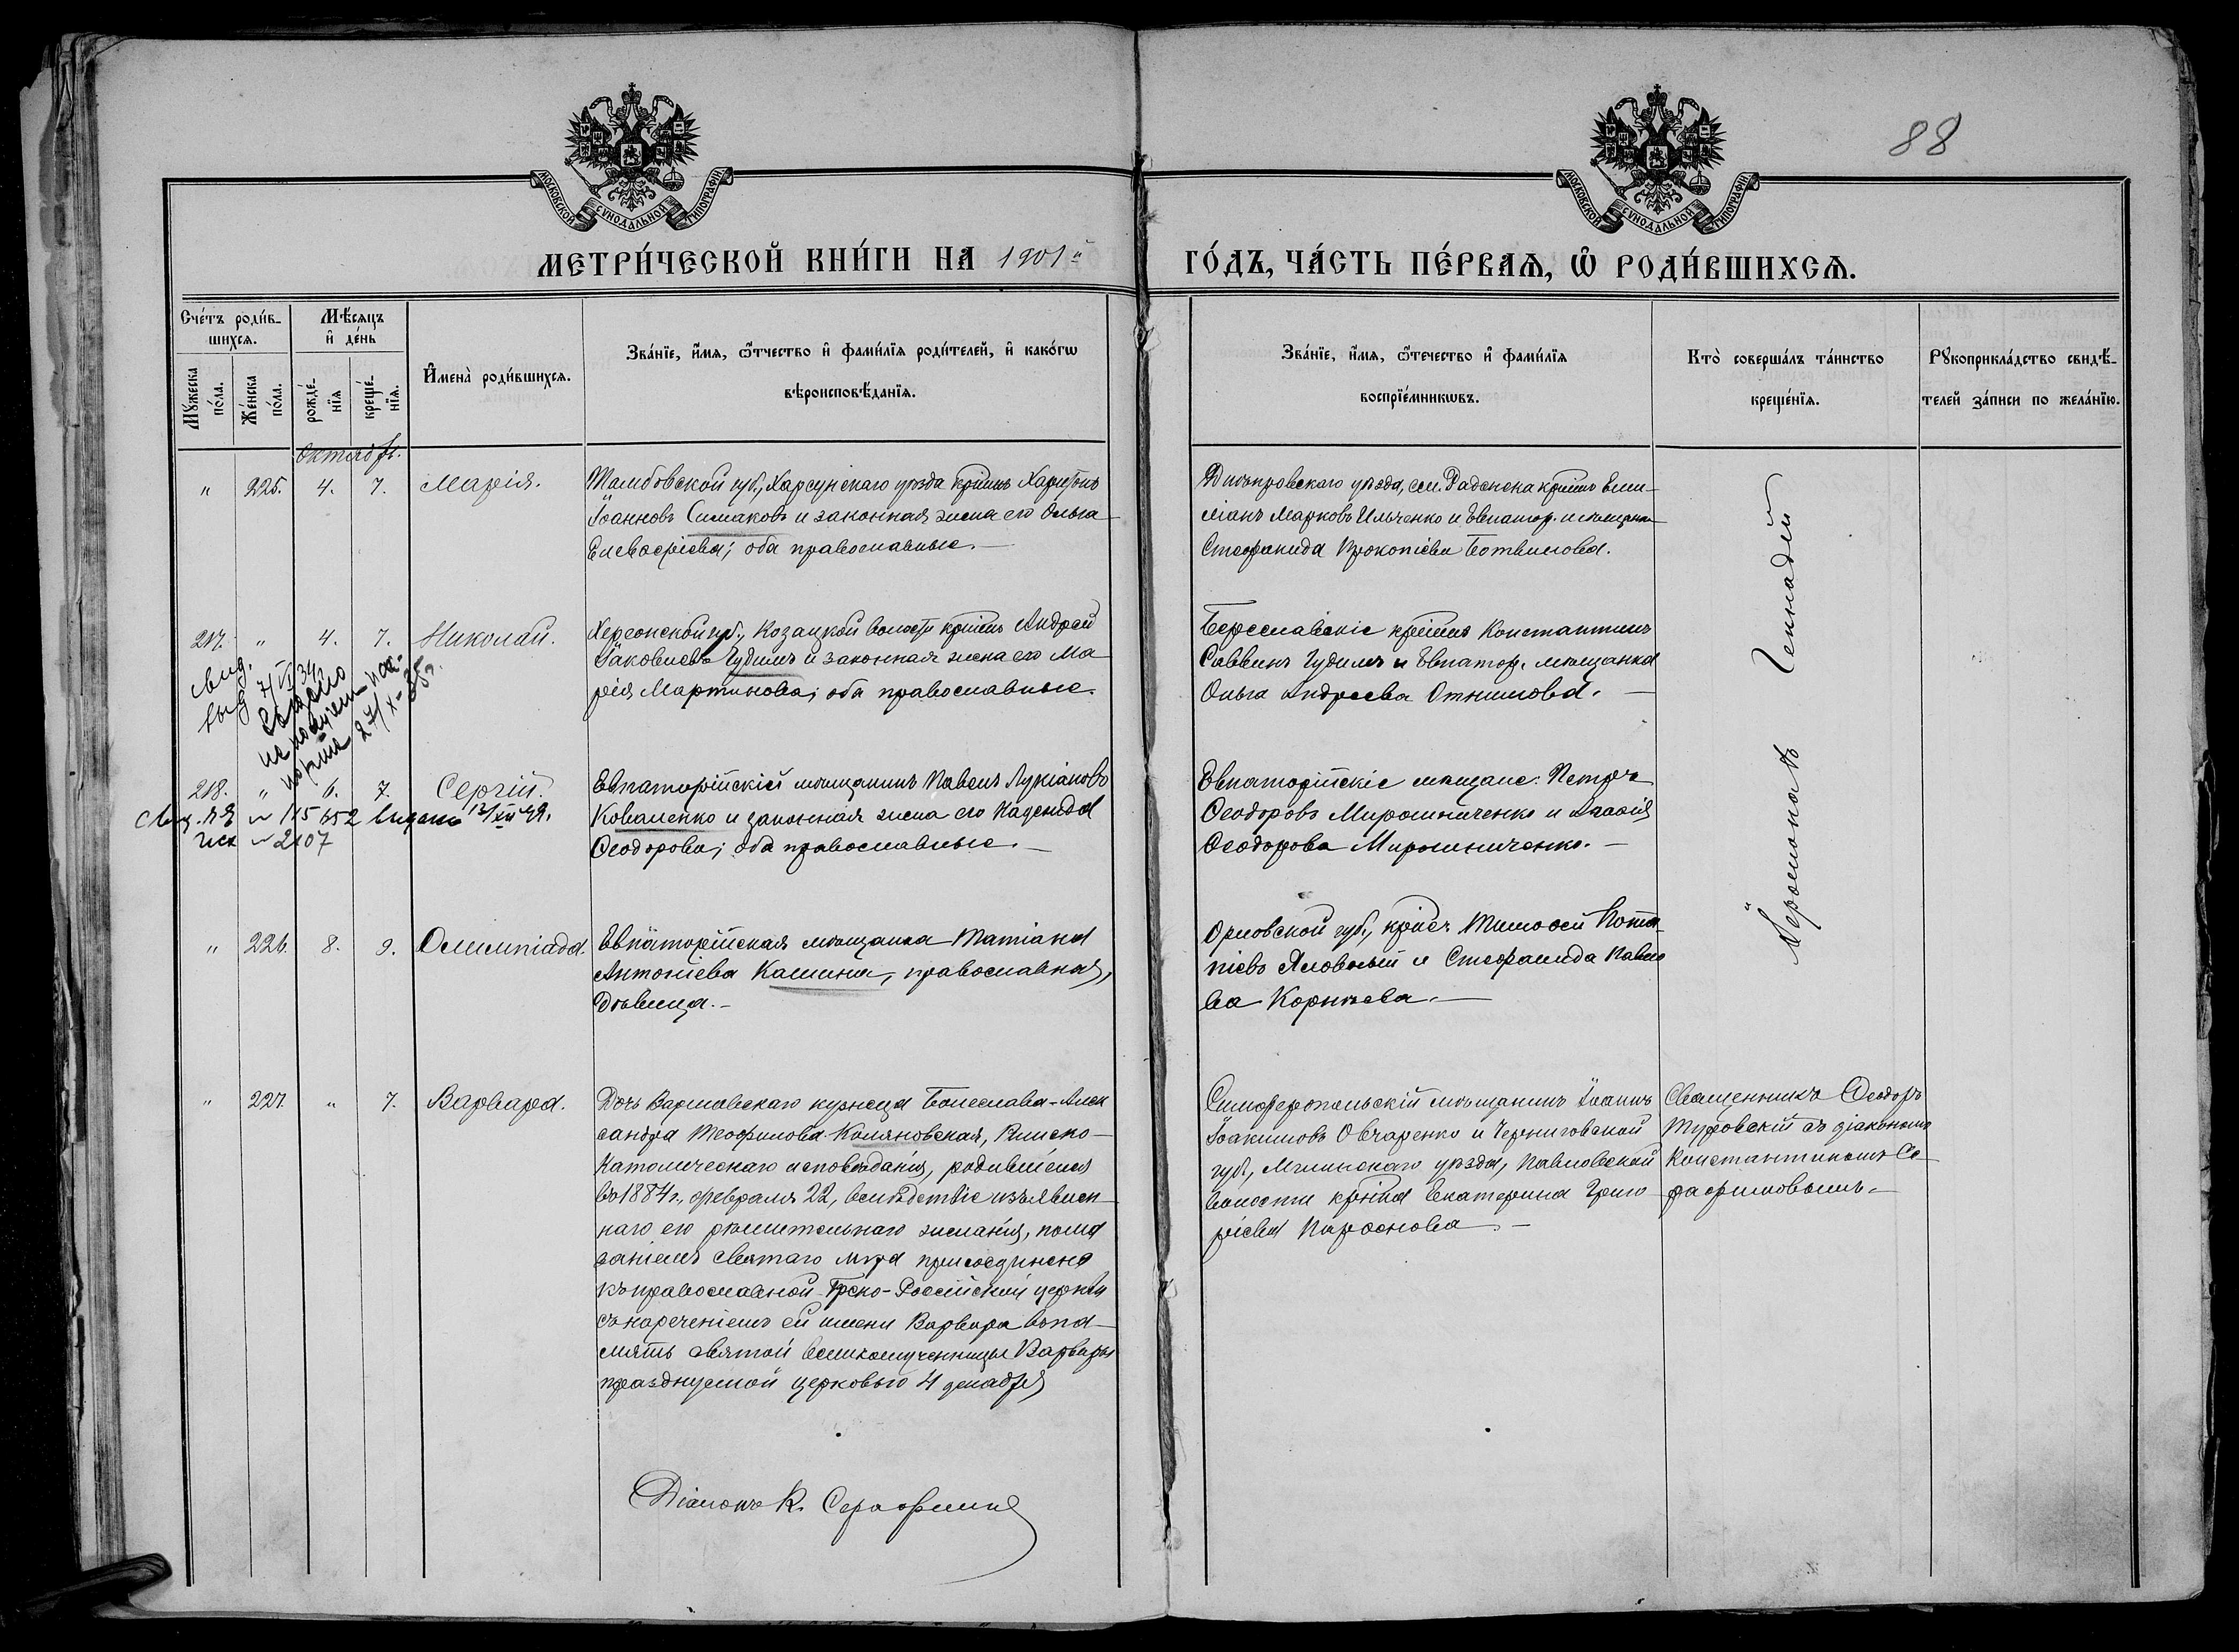 88
МОСКОВСКОЙ СѴНОДАЛЬНОЙ ТИПОГРАФІИ
МОСКОВСКОЙ СѴНОДАЛЬНОЙ ТИПОГРАФІИ
МЕТРИ́ЧЕСКОЙ КНИ́ГИ НА 1901й
ГО́ДЪ, ЧА́СТЬ ПЕ́РВАѦ, Ѡ РОДИ́ВШИХСѦ.
Сче́тъ роди́в-
шихсѧ.
Мꙋ́жеска по́ла.
Же́нска по́ла.
Мѣ́сѧцъ
и҆ де́нь
рожде́-
нїѧ
креще́-
нїѧ.
И҆мена̀ роди́вшихсѧ.
Зва́нїе, и҆́мѧ, ѻ҆́тчество и҆ фами́лїѧ роди́телей, и҆ како́гѡ
вѣроисповѣ́данїѧ.
Зва́нїе, и҆́мѧ, ѻ҆́течество и҆ фами́лїѧ
воспрїе́мникѡвъ.
Кто̀ соверша́лъ та́инство
креще́нїѧ.
Рꙋкоприкла́дство свидѣ́-
телей за́писи по жела́нїю.
Октябрь.
" 225. 4. 7. Марія.
Тамбовской губ., Харсунскаго уѣзда крѣтнъ Харитонъ
Іоанновъ Симаковъ и законная жена его Ольга
Елевѳеріева; оба православные.—
Днѣпровскаго уѣзда, сел. Раденска крѣтнъ Еми-
ліанъ Марковъ Ильченко и Евпатор. мѣщанка
Стефанида Прокопіева Ботвинова.
217. " 4. 7. Николай.
Херсонской губ., Козацкой волости крѣтнъ Андрей
Іаковлевъ Гудимъ и законная жена его Ма-
рія Мартинова; оба православные.
Береславскіе крѣтнъ Константинъ
Саввинъ Гудимъ и Евпатор. мѣщанка
Ольга Андреева Отнимова.—
свид.
выд 7/VI 34
выдано
на получен. пас-
порта 27/X-38г.
218. " 6. 7. Сергій.
Евпаторійскій мѣщанинъ Павелъ Лукіановъ
Коваленко и законная жена его Надежда
Ѳеодорова; оба православные.—
Евпаторійскіе мѣщане: Петръ
Ѳеодоровъ Мирошниченко и
Ѳеодорова Мирошниченко.—
115 652 выдано 13/XII 49.
2107
" 226. 8. 9. Олимпіада.
Евпаторійская мѣщанка Татіана
Антоніева Калинина, православная,
дѣвица.—
Орловской губ., Тимоѳей Пота-
піевъ Яловый и Стефанида Павло
ва Корнѣева.—
Іеромонахъ Геннадій
" 227. " 7. Варвара.
Дочь Варшавскаго кузнеца Болеслава-Алек
сандра Теофилова Коляновская, Римско-
Католическаго исповѣданія, родившейся
въ 1884 г., февраля 22, вслѣдствіе изъявлен-
наго ею рѣшительнаго желанія, пома
заніемъ Святаго мѵра присоединена
къ православной Греко-Россійской церкви
съ нареченіемъ ей имени Варвара въ па-
мять святой великомученницы Варвары
празднуемой церковью 4 декабря
Симферопольскій мѣщанинъ Іоаннъ
Іоакимовъ Овчаренко и Черниговской
губ., Мглинскаго уѣзда, Павловской
волости крѣтка Екатерина Григо
ріева Парѳенова.—
Священникъ Ѳеодоръ
Туровскій съ діакономъ
Константиномъ Се-
рафимовымъ.—
Діаконъ К. Серафимов